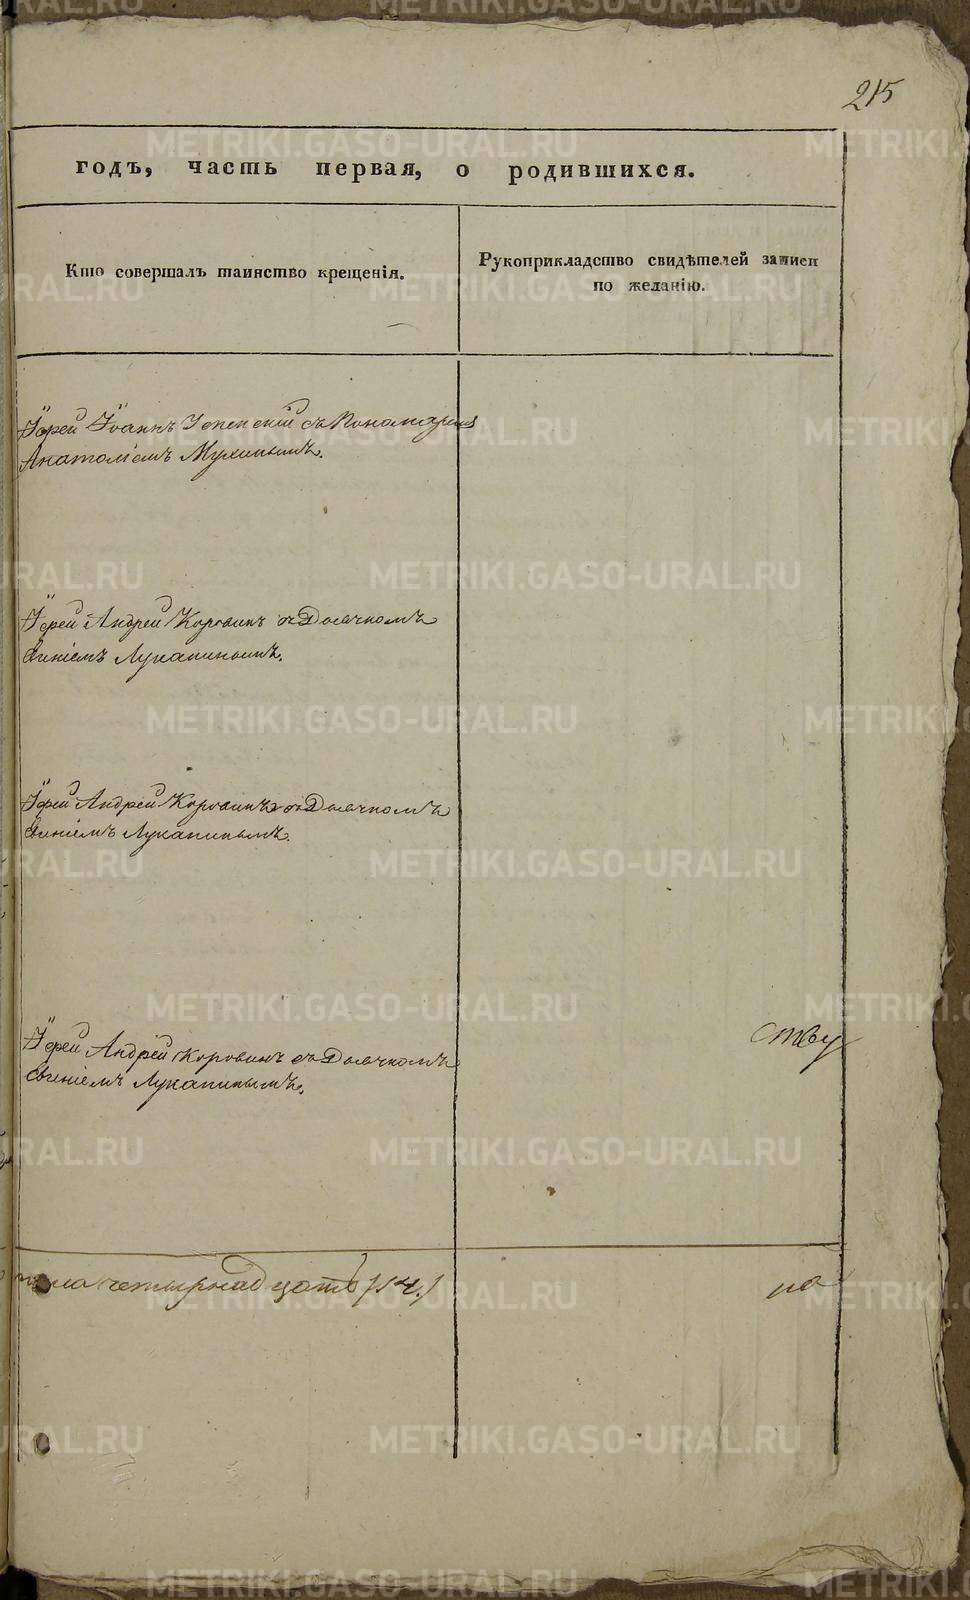 215
годъ, часть первая, о родившихся.
Кто совершалъ таинство крещенія.
Рукоприкладство свидѣтелей записи
по желанію.
Іерей Іоаннъ Успенскій съ Пономаремъ
Анатоліемъ Мухинымъ.
Іерей Андрей Коровинъ съ Дьячкомъ
Лукапинымъ.
Іерей Андрей Коровинъ съ Дьячкомъ
Лукапинымъ.
Іерей Андрей Коровинъ съ Дьячкомъ
Лукапинымъ.
ству
пола четырнадцать /14./
по
METRIKI.GASO-URAL.RU